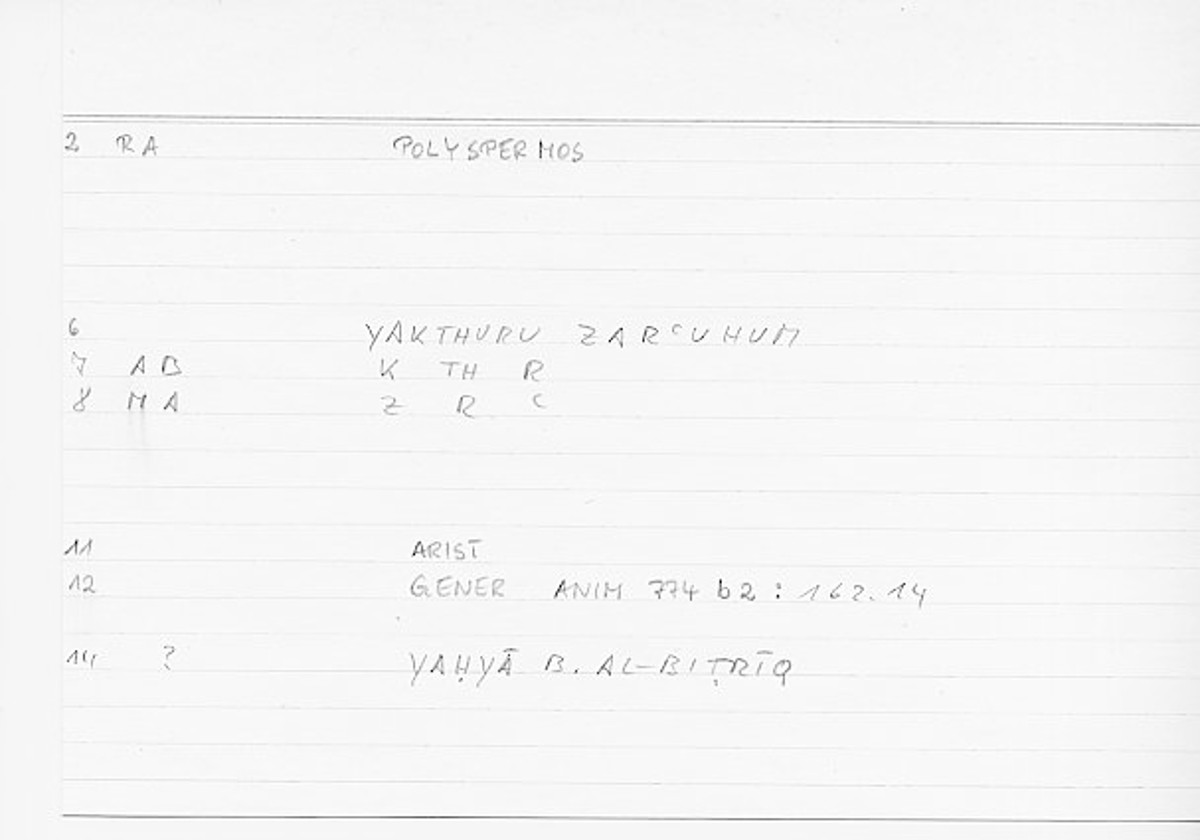 2 RA POLYSPERMOS
6 YAKTHURU ZARʿUHUM
7 AB K TH R
8 MA Z R ʿ
11 ARIST
12 GENER ANIM 774 b2 : 162.14
14 ? YAḤYĀ B. AL-BIṬRĪQ